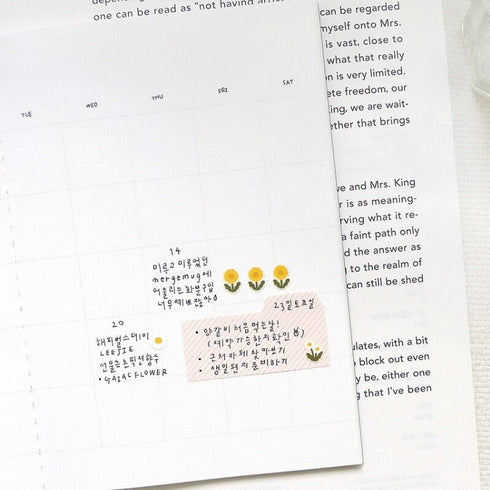 one can be read as "not having
can be regarded
myself onto Mrs.
is vast, close to
what that really
is very limited.
freedom, our
ing, we are wait-
ether that brings
TUE WED THU FRI SAT
and Mrs. King
r is as meaning-
rving what it re-
a faint path only
d the answer as
to the realm of
can still be shed
14
미루고 미루었던
mergemug에
어울리는 화분 구입
너무 예쁘잖아
23일 토요일
• 양갈비 처음 먹는 날!
(예약 가능한지 확인)
• 근처 카페 찾아보기
• 생일 편지 준비하기
20
해피벌스데이
LEEJIE
선물은 논픽션 향수
• GALACFLOWER
lates, with a bit
block out even
y be, either one
that I've been